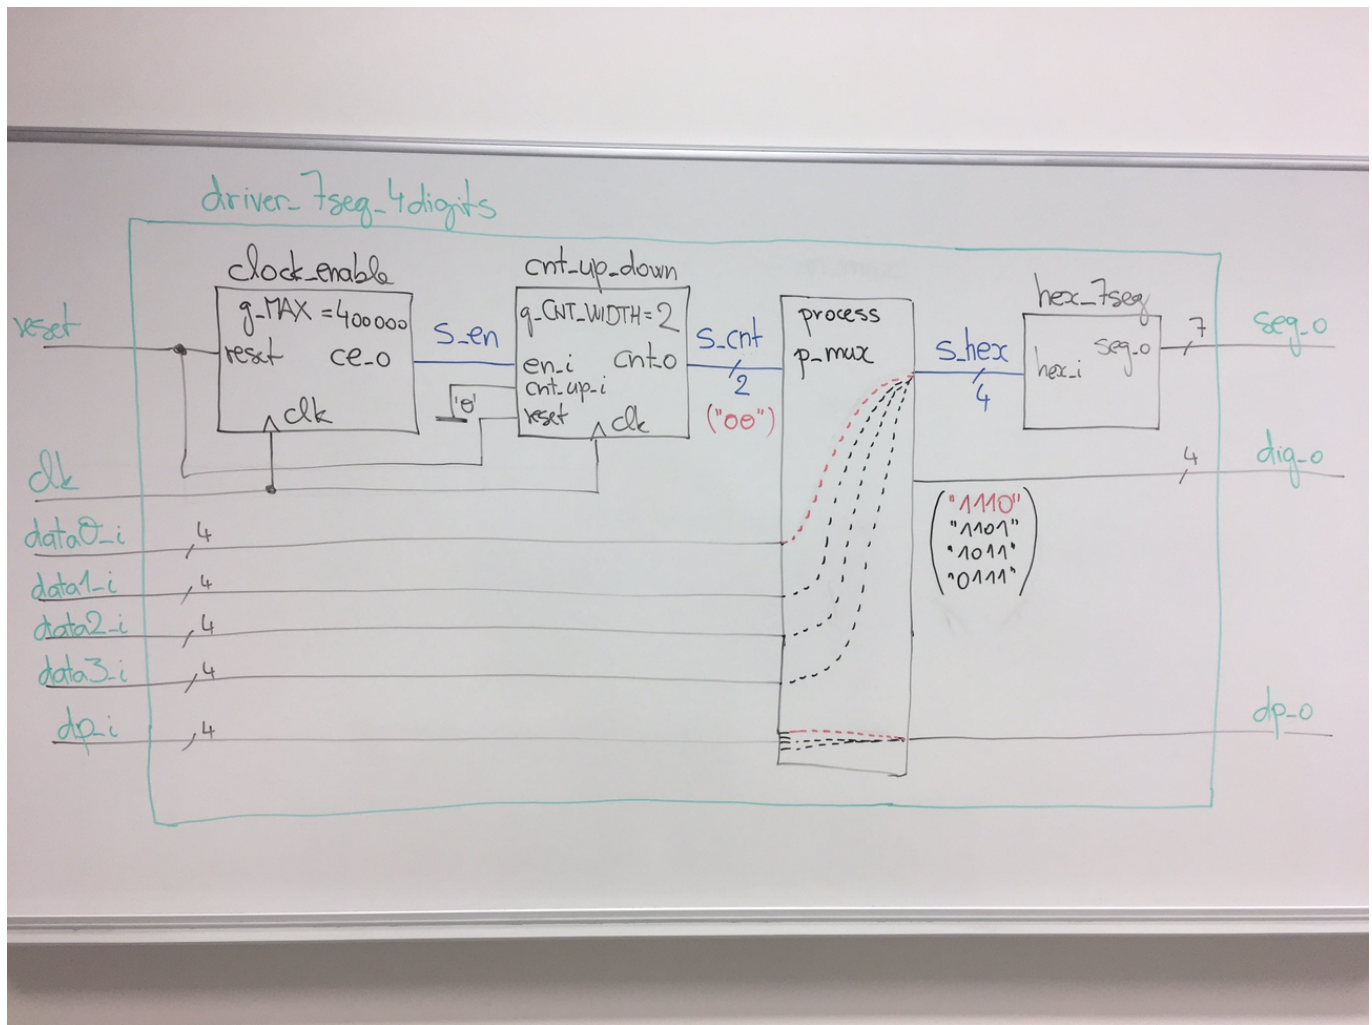 driver_7seg_4digits
clock_enable
g_MAX = 400000
reset
ce_o
clk
s_en
cnt_up_down
g_CNT_WIDTH = 2
en_i
cnt_o
cnt_up_i
'0'
reset
clk
s_cnt
2
("00")
process
p_mux
s_hex
4
hex_7seg
hex_i
seg_o
7
seg_o
4
dig_o
"1110"
"1101"
"1011"
"0111"
reset
clk
data0_i
4
data1_i
4
data2_i
4
data3_i
4
dp_i
4
dp_o